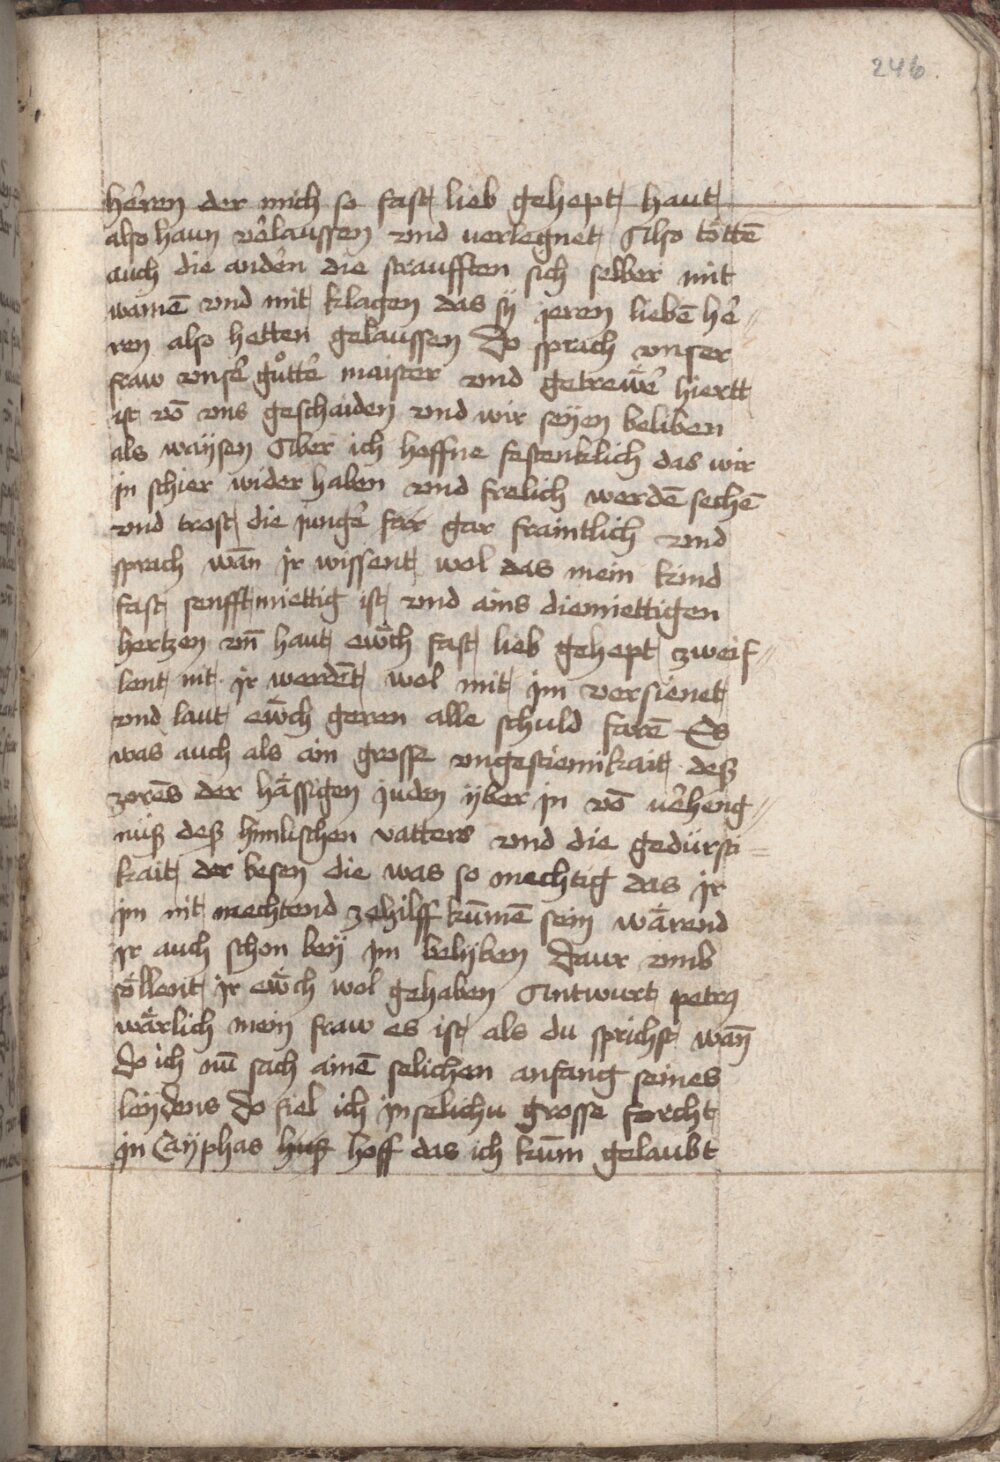 246.
hêren der mich so fast lieb gehept haut
also haun vêlaussen vnd uerlegnet Also tôttē
auch die andên die straufften sich selber mit
wainē vnd mit klagen das sÿ jeren liebē hê //
ren also hetten gelaussen Do sprach vnser
fraw vnsê gůttê maister vnd getrewê hiertt
ist vō vns geschaiden vnd wir seÿen beliben
als waÿsen Aber ich hoffne festenklich das wir
jn schier wider haben vnd frelich werdē sechē
vnd trost die jungê fa͏r gar fraintlich vnd
sprach wān jr wissent wol das mein kind
fast senfftmiettig ist vnd ains diemiettigen
hertzen vn̄ haut ewch fast lieb gehept zweif //
lent nit jr werdēt wol mit jm versienet
vnd laut ewch geren alle schuld farē Es
was auch als ain grosse vngestiemikait deß
zorēs der hässigen juden ÿber jn vō vêheng //
nuß deß himlischen vatters vnd die gedürsti =
kait der besen die was so mechtig das jr
jm nit mechtend zehilff kūmē sein wärend
jr auch schon beÿ jm belÿben Daur vmb
söllent jr ewch wol gehaben Antwurt petrꝰ
wärlich mein fraw es ist als du sprichst wan̄
do ich nū sach ainē selichen anfang seines
leÿdens do fiel ich jn selichu grosse forcht
jn Caÿphas huß hoff das ich kūm gelaubt